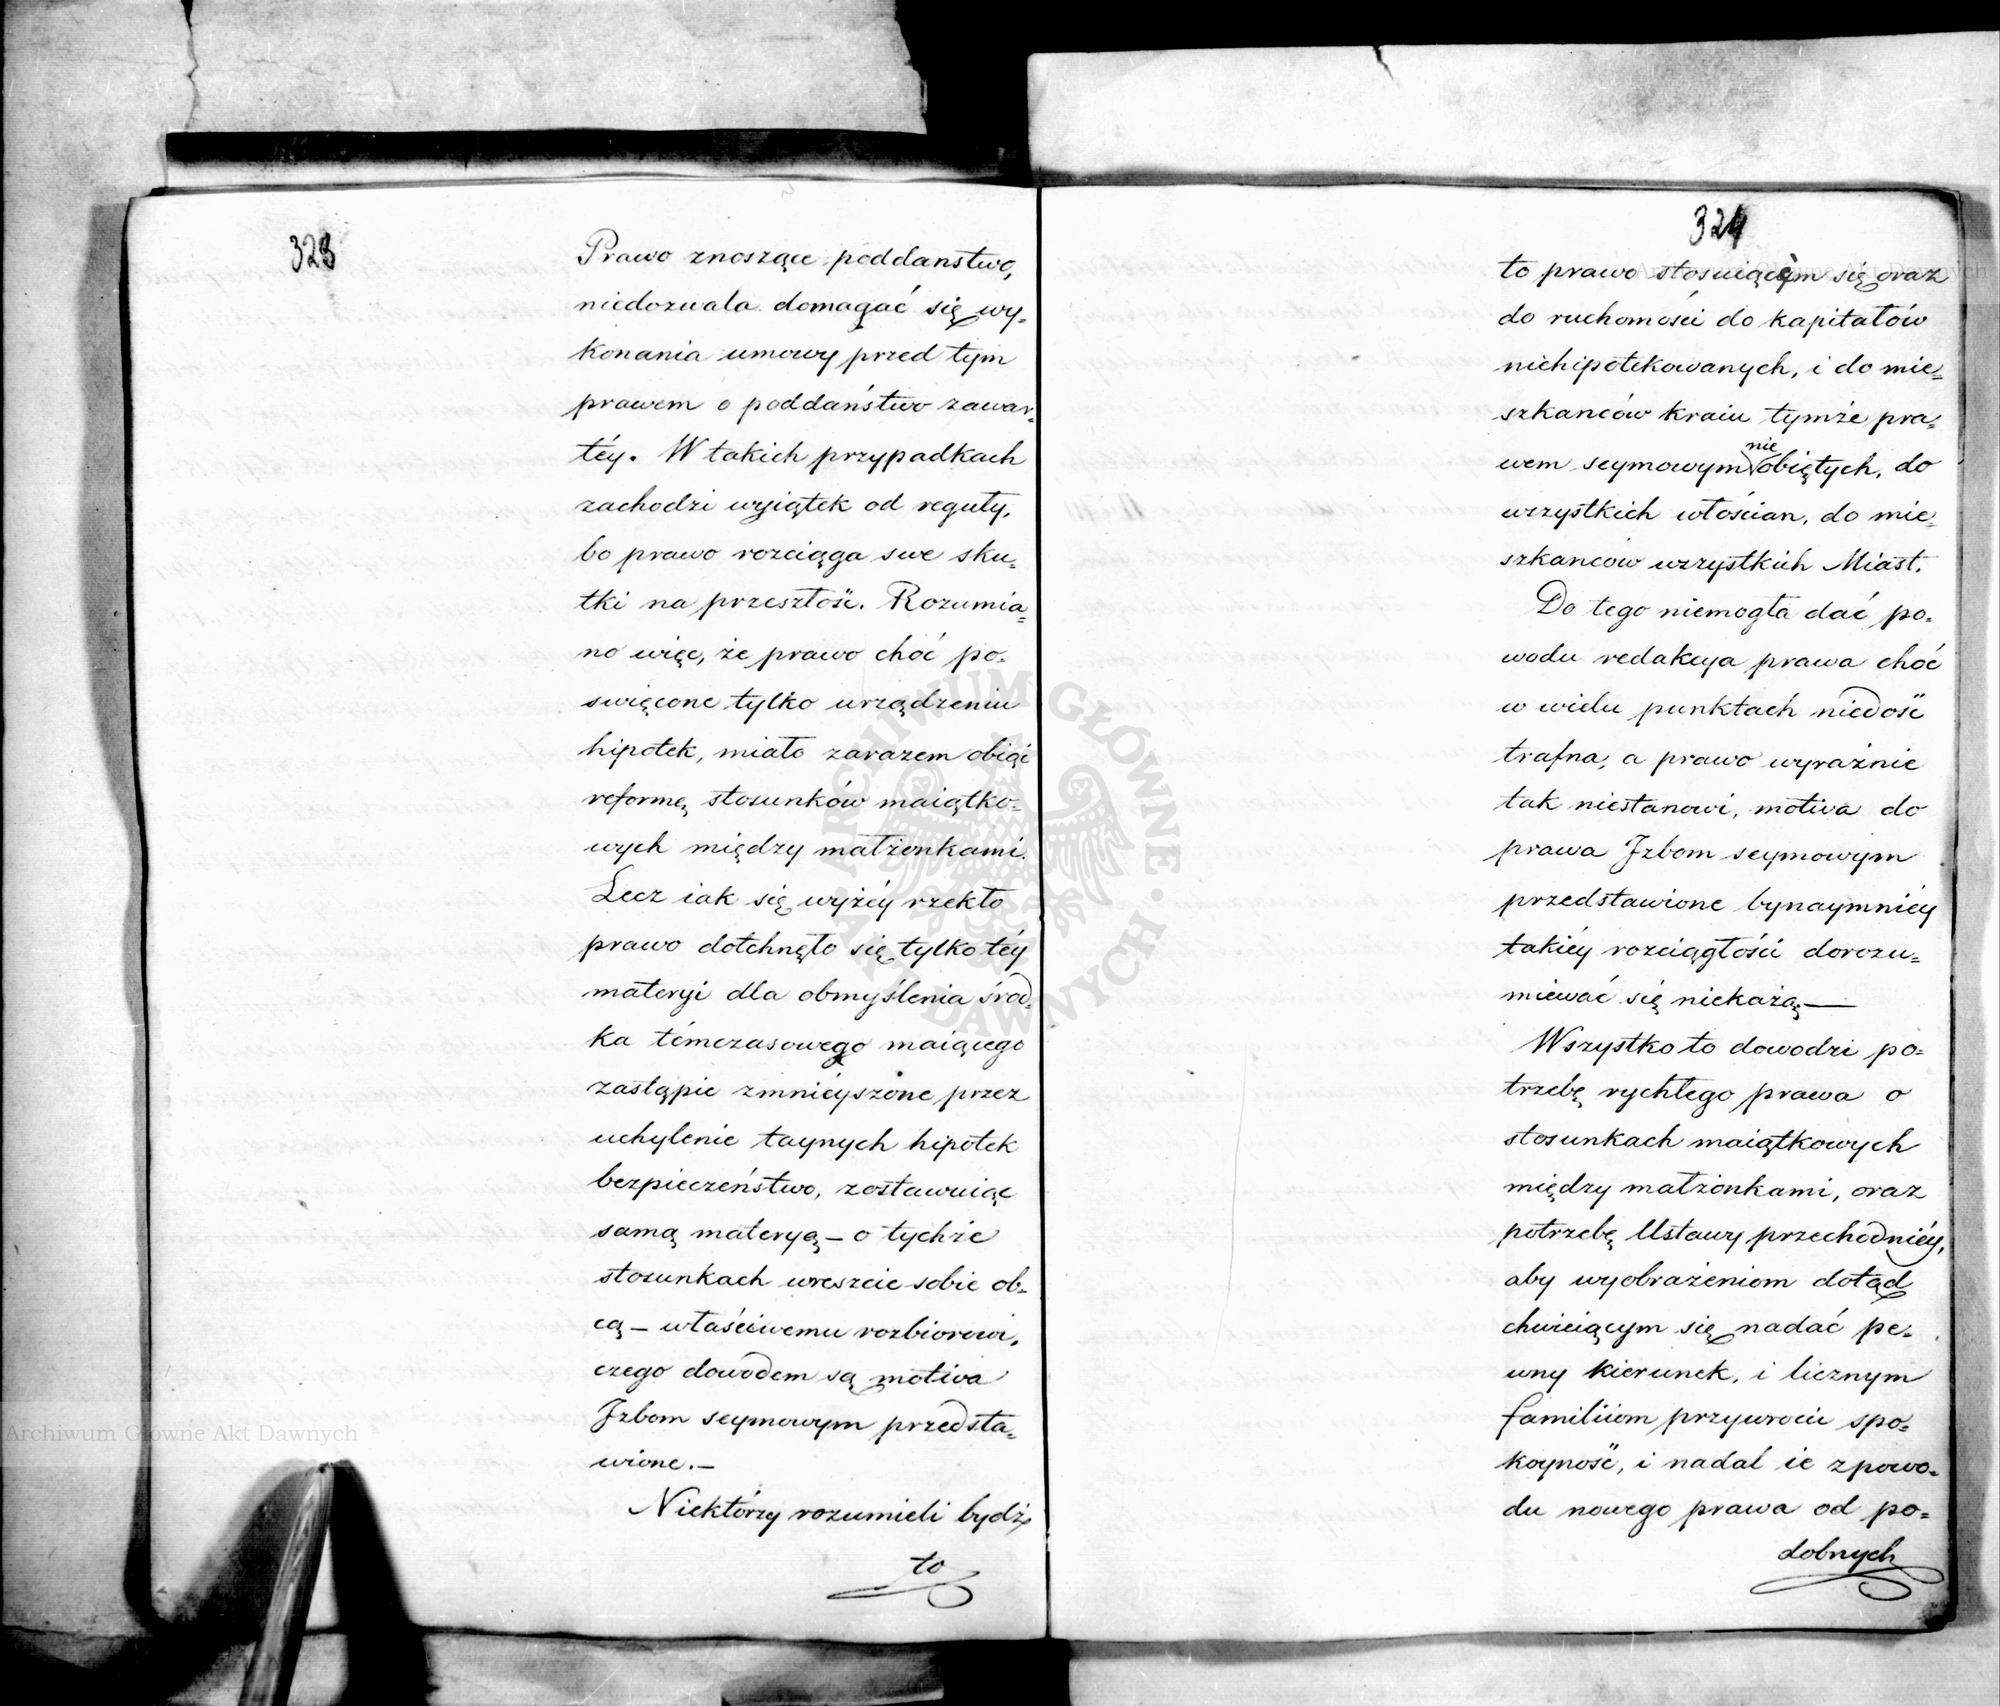 323
Prawo znoszące poddanstwo,
niedozwala domagać się wy=
konania umowy przed tym
prawem o poddaństwo zawar=
téy. W takich przypadkach
zachodzi wyiątek od reguły,
bo prawo rozciąga swe sku=
tki na przeszłość. Rozumia=
no więc, że prawo choć po=
święcone tylko urządzeniu
hipotek, miało zarazem obiąć
reformę stosunków maiątko=
wych między małżonkami.
Lecz iak się wyżéy rzekło
prawo dotchnęło się tylko téy
materyi dla obmyślenia środ=
ka témczasowego maiącego
zastąpić zmniéyszone przez
uchylenie taynych hipotek
bezpieczeństwo, zostawuiąc
samą materyą – o tychże
stosunkach wreszcie sobie ob=
cą – właściwemu rozbiorowi,
czego dowodem są motiva
Jzbom seymowym przedsta=
wione. –
Niektórzy rozumieli bydź
to
324
to prawo stosuiącém się oraz
do ruchomości do kapitałów
niehipotekowanych, i do mie=
szkanców kraiu tymże pra=
wem seymowym nie obiętych, do
wszystkich włościan, do mie=
szkanców wszystkich Miast.
Do tego niemogła dać po=
wodu redakcya prawa choć
w wielu punktach niedość
trafna; a prawo wyraźnie
tak niestanowi, motiva do
prawa Jzbom seymowym
przedstawione bynaymniéy
takiéy rozciągłości dorozu=
miewać się niekażą. —
Wszystko to dowodzi po=
trzebę rychłego prawa o
stosunkach maiątkowych
między małżonkami, oraz
potrzebę Ustawy przechodniéy,
aby wyobrażeniom dotąd
chwieiącym się nadać pe=
wny kierunek, i licznym
familiiom przywrócić spo=
koyność, i nadal ie z powo=
du nowego prawa od po=
dobnych
Archiwum Główne Akt Dawnych
Archiwum Główne Akt Dawnych
ARCHIWUM GŁÓWNE · AKT DAWNYCH ·